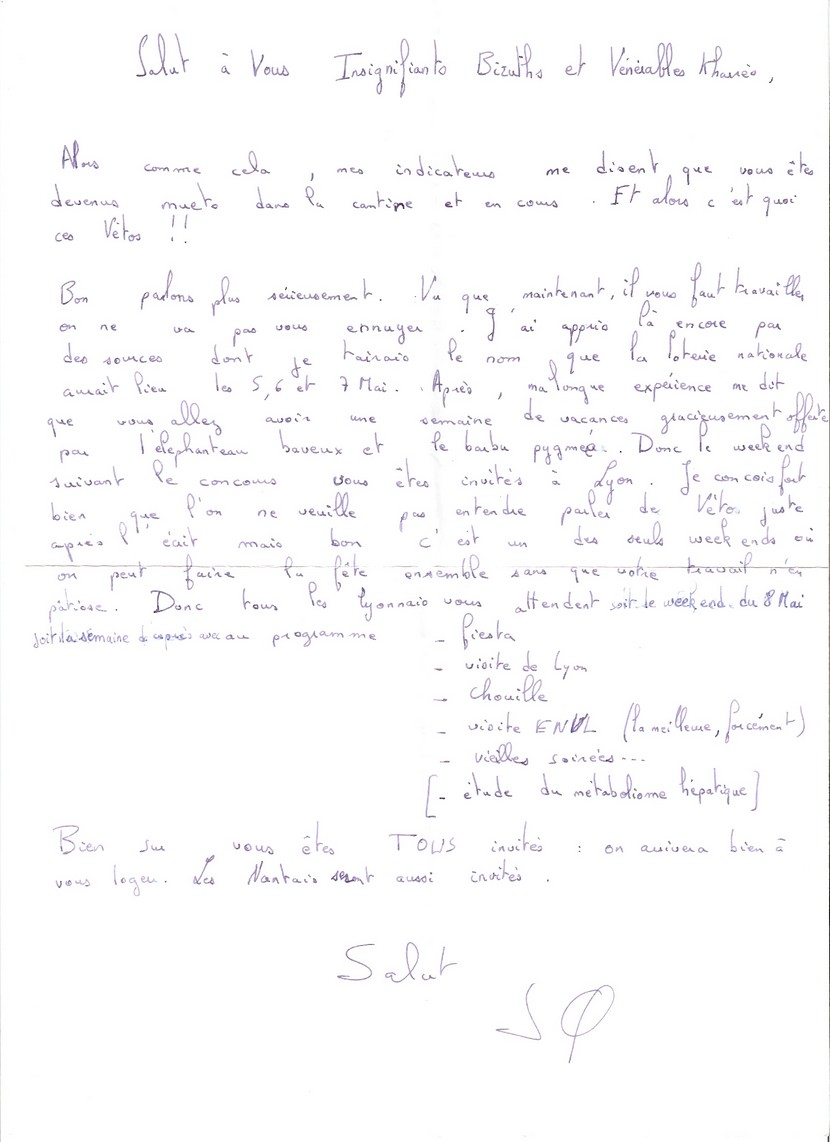 Salut à Vous Insignifiants Bizuths et Vénérables Khârrés,
Alors comme cela, mes indicateurs me disent que vous êtes
devenus muets dans la cantine et en cours. Et alors c'est quoi
ces Vétos !!
Bon parlons plus sérieusement. Vu que, maintenant, il vous faut travailler
on ne va pas vous ennuyer. J'ai appris là encore par
des sources dont je tairais le nom que la loterie nationale
aurait lieu les 5, 6 et 7 Mai. Après, ma longue expérience me dit
que vous allez avoir une semaine de vacances gracieusement offerte
par l'éléphanteau baveux et le barbu pygmée. Donc le week end
suivant le concours vous êtes invités à Lyon. Je concois fort
bien que l'on ne veuille pas entendre parler de Vétos juste
après l'écrit mais bon c'est un des seuls week ends où
on peut faire la fête ensemble sans que votre travail n'en
patisse. Donc tous les lyonnais vous attendent soit le week end du 8 Mai
soit la semaine d'après avec au programme - fiesta
- visite de Lyon
- chouille
- visite ENVL (la meilleure, forcément)
- vieilles soirées...
[- étude du métabolisme hépatique]
Bien sur vous êtes TOUS invités : on arrivera bien à
vous loger. Les Nantais seront aussi invités.
Salut